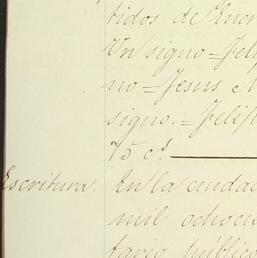 tidos de Ener
Un signo = Feli
no = Jesus
signo. = Felip
75 cs.
Escritura. En la ciudad
mil ochoci
tario público